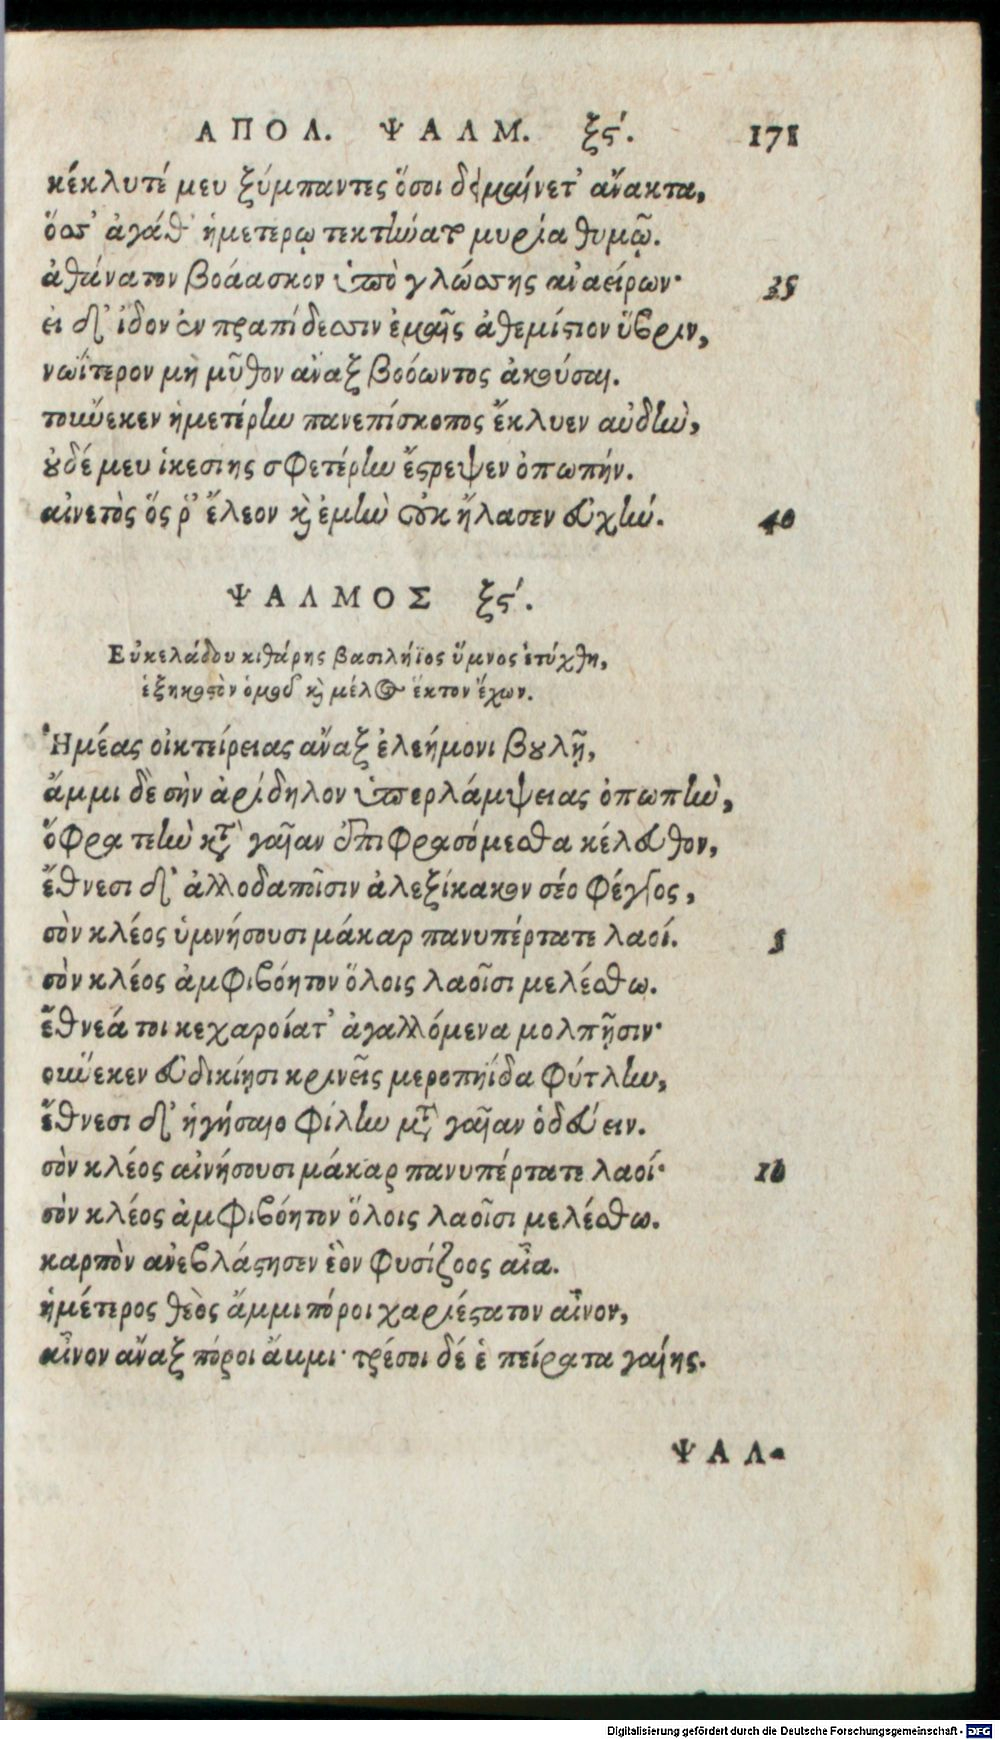 ΑΠΟΛ. ΨΑΛΜ. ξϛʹ. 171
κέκλυτέ μευ ξύμπαντες ὅσοι δειμαίνετ' ἄνακτα,
ὅσσ' ἀγάθ' ἡμετέρῳ τεκτήνατο μυρία θυμῷ.
ἀθάνατον βοάασκον ὑπὸ γλώσσης ἀναείρων· 35
εἰ δ' ἴδον ἐν πραπίδεσσιν ἐμαῖς ἀθεμίστιον ὕβριν,
νωΐτερον μὴ μῦθον ἄναξ βοόωντος ἀκούσαι.
τοὔνεκεν ἡμετέρην πανεπίσκοπος ἔκλυεν αὐδὴν,
οὐδέ μευ ἱκεσίης σφετέρην ἔστρεψεν ὀπωπήν.
αἰνετὸς ὅς ῥ' ἔλεον καὶ ἐμὴν οὐκ ἤλασεν εὐχήν. 40
ΨΑΛΜΟΣ ξϛʹ.
Εὐκελάδου κιθάρης βασιλήϊος ὕμνος ἐτύχθη,
ἑξηκοστὸν ὁμοῦ καὶ μέλος ἕκτον ἔχων.
Ἡμέας οἰκτείρειας ἄναξ ἐλεήμονι βουλῇ,
ἄμμι δὲ σὴν ἀρίδηλον ὑπερλάμψειας ὀπωπὴν,
ὄφρα τεὴν κατὰ γαῖαν ἐπιφρασόμεσθα κέλευθον,
ἔθνεσι δ' ἀλλοδαποῖσιν ἀλεξίκακον σέο φέγγος,
σὸν κλέος ὑμνήσουσι μάκαρ πανυπέρτατε λαοί. 5
σὸν κλέος ἀμφιβόητον ὅλοις λαοῖσι μελέσθω.
ἔθνεά τοι κεχαροίατ' ἀγαλλόμενα μολπῇσιν·
οὕνεκεν εὐδικίῃσι κρινεῖς μεροπηΐδα φύτλην,
ἔθνεσι δ' ἡγήσαιο φίλην μετὰ γαῖαν ὁδεύειν.
σὸν κλέος αἰνήσουσι μάκαρ πανυπέρτατε λαοί· 10
σὸν κλέος ἀμφιβόητον ὅλοις λαοῖσι μελέσθω.
καρπὸν ἀνεβλάστησεν ἑὸν φυσίζοος αἶα.
ἡμέτερος θεὸς ἄμμι πόροι χαριέστατον αἶνον,
αἶνον ἄναξ πόροι ἄμμι· τρέσοι δέ ἑ πείρατα γαίης.
ΨΑΛ-
Digitalisierung gefördert durch die Deutsche Forschungsgemeinschaft - DFG